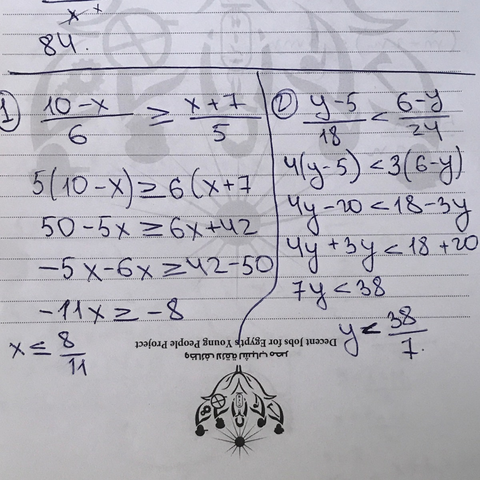 x x
84.
1) (10-x)/6 ≥ (x+7)/5
5(10-x) ≥ 6(x+7
50-5x ≥ 6x+42
-5x-6x ≥ 42-50
-11x ≥ -8
x ≤ 8/11
2) (y-5)/18 < (6-y)/24
4(y-5) < 3(6-y)
4y-20 < 18-3y
4y+3y < 18+20
7y < 38
y < 38/7.
Decent Jobs for Egypt's Young People Project